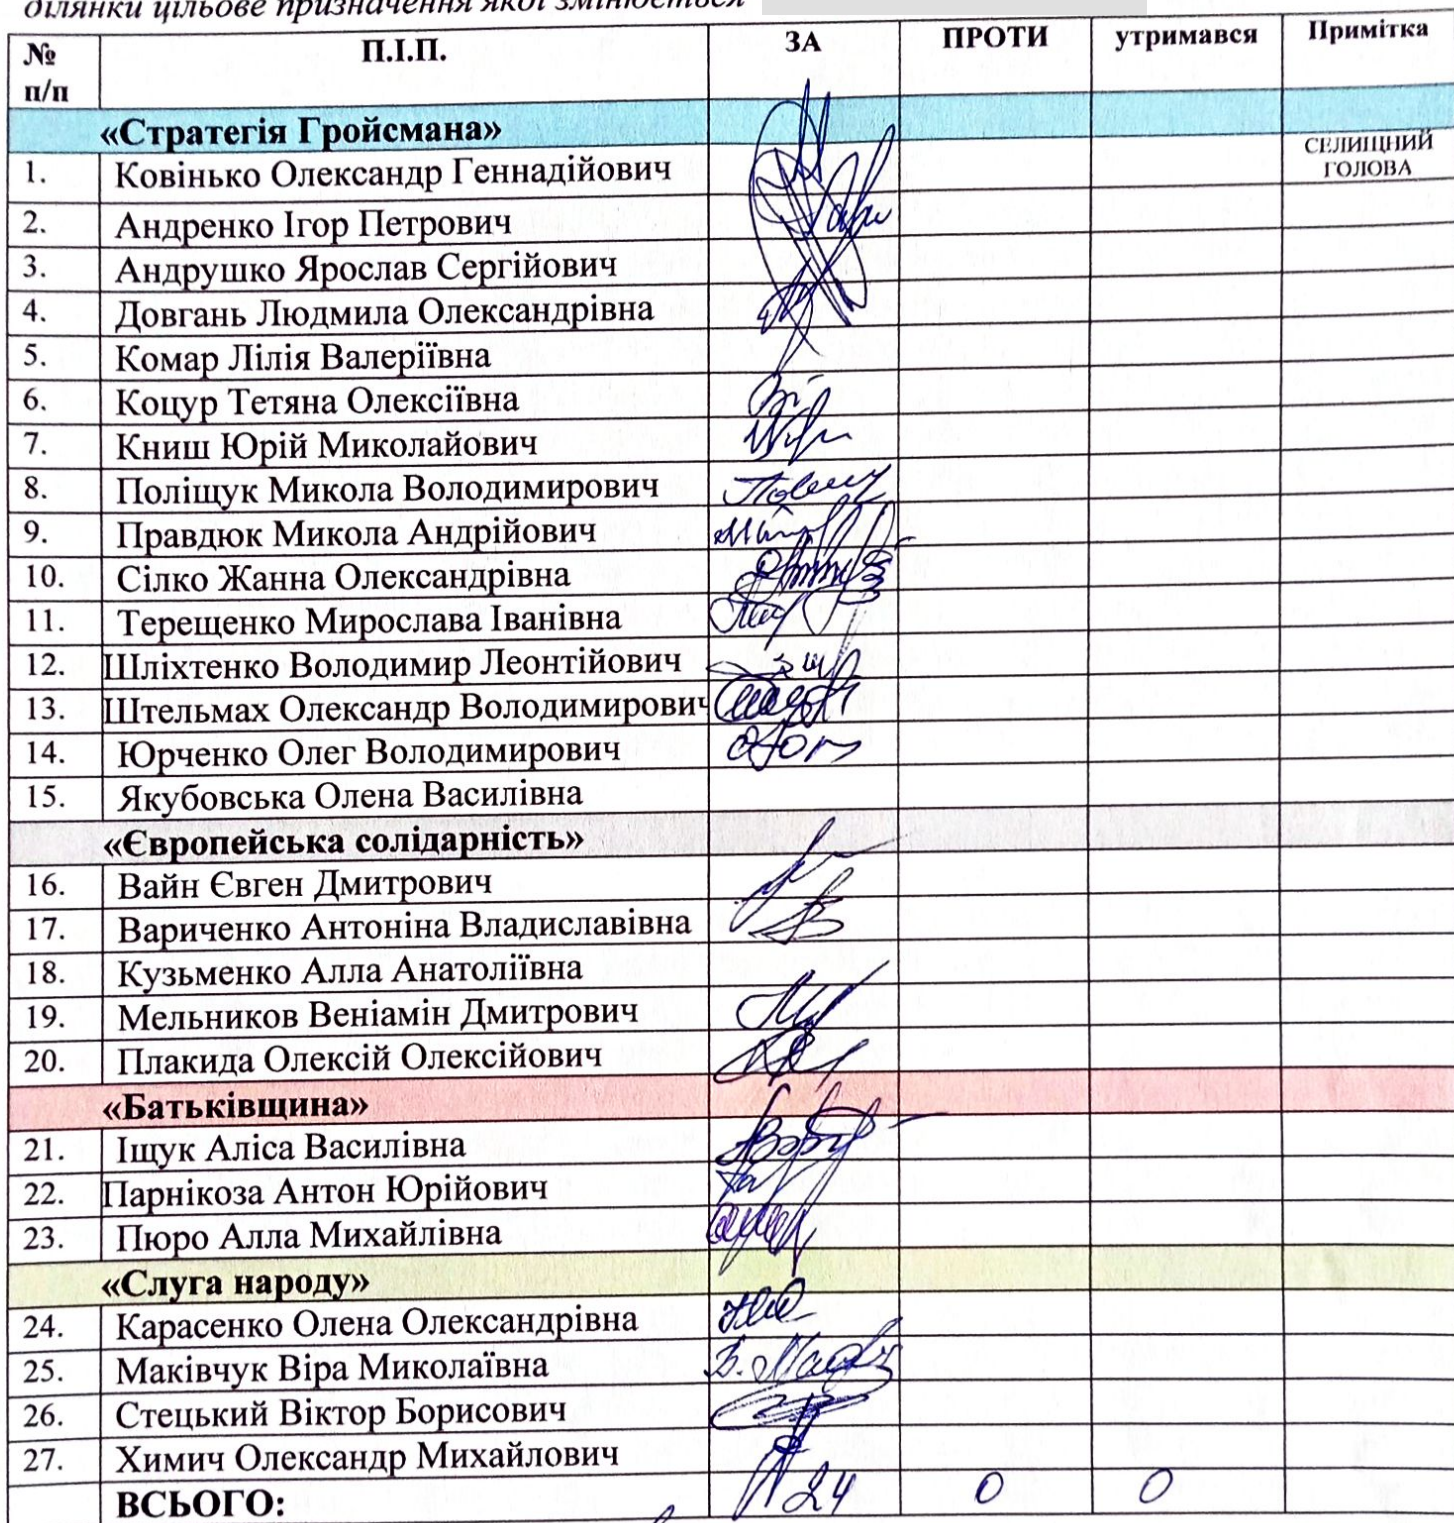 ділянки цільове призначення якої змінюється
№ п/п П.І.П. ЗА ПРОТИ утримався Примітка
«Стратегія Гройсмана»
1. Ковінько Олександр Геннадійович СЕЛИЩНИЙ ГОЛОВА
2. Андренко Ігор Петрович
3. Андрушко Ярослав Сергійович
4. Довгань Людмила Олександрівна
5. Комар Лілія Валеріївна
6. Коцур Тетяна Олексіївна
7. Книш Юрій Миколайович
8. Поліщук Микола Володимирович
9. Правдюк Микола Андрійович
10. Сілко Жанна Олександрівна
11. Терещенко Мирослава Іванівна
12. Шліхтенко Володимир Леонтійович
13. Штельмах Олександр Володимирович
14. Юрченко Олег Володимирович
15. Якубовська Олена Василівна
«Європейська солідарність»
16. Вайн Євген Дмитрович
17. Вариченко Антоніна Владиславівна
18. Кузьменко Алла Анатоліївна
19. Мельников Веніамін Дмитрович
20. Плакида Олексій Олексійович
«Батьківщина»
21. Іщук Аліса Василівна
22. Парнікоза Антон Юрійович
23. Пюро Алла Михайлівна
«Слуга народу»
24. Карасенко Олена Олександрівна
25. Маківчук Віра Миколаївна
26. Стецький Віктор Борисович
27. Химич Олександр Михайлович
ВСЬОГО: 24 0 0